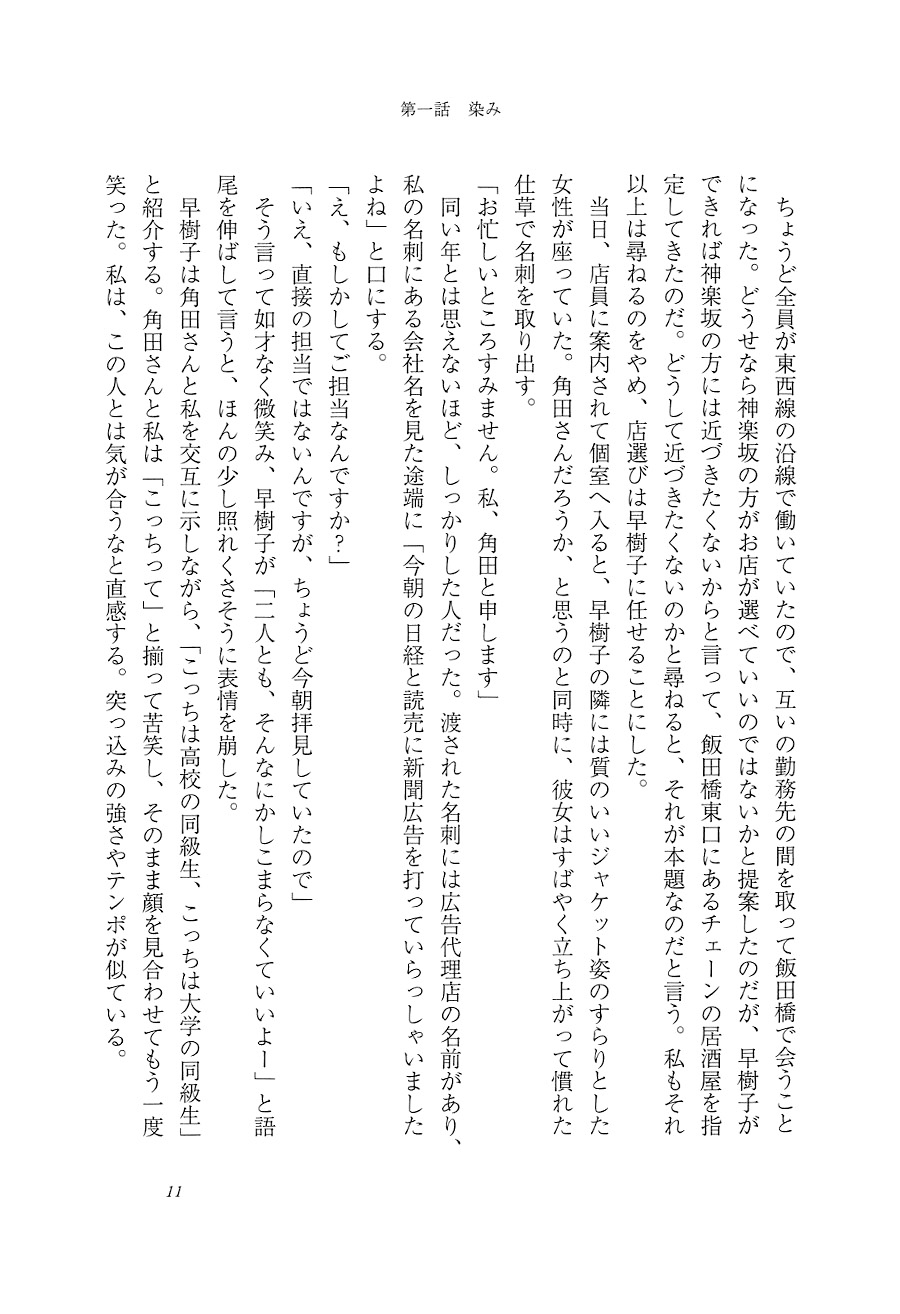 第一話　染み
　ちょうど全員が東西線の沿線で働いていたので、互いの勤務先の間を取って飯田橋で会うこと
になった。どうせなら神楽坂の方がお店が選べていいのではないかと提案したのだが、早樹子が
できれば神楽坂の方には近づきたくないからと言って、飯田橋東口にあるチェーンの居酒屋を指
定してきたのだ。どうして近づきたくないのかと尋ねると、それが本題なのだと言う。私もそれ
以上は尋ねるのをやめ、店選びは早樹子に任せることにした。
　当日、店員に案内されて個室へ入ると、早樹子の隣には質のいいジャケット姿のすらりとした
女性が座っていた。角田さんだろうか、と思うのと同時に、彼女はすばやく立ち上がって慣れた
仕草で名刺を取り出す。
「お忙しいところすみません。私、角田と申します」
　同い年とは思えないほど、しっかりした人だった。渡された名刺には広告代理店の名前があり、
私の名刺にある会社名を見た途端に「今朝の日経と読売に新聞広告を打っていらっしゃいました
よね」と口にする。
「え、もしかしてご担当なんですか？」
「いえ、直接の担当ではないんですが、ちょうど今朝拝見していたので」
　そう言って如才なく微笑み、早樹子が「二人とも、そんなにかしこまらなくていいよー」と語
尾を伸ばして言うと、ほんの少し照れくさそうに表情を崩した。
　早樹子は角田さんと私を交互に示しながら、「こっちは高校の同級生、こっちは大学の同級生」
と紹介する。角田さんと私は「こっちって」と揃って苦笑し、そのまま顔を見合わせてもう一度
笑った。私は、この人とは気が合うなと直感する。突っ込みの強さやテンポが似ている。
11